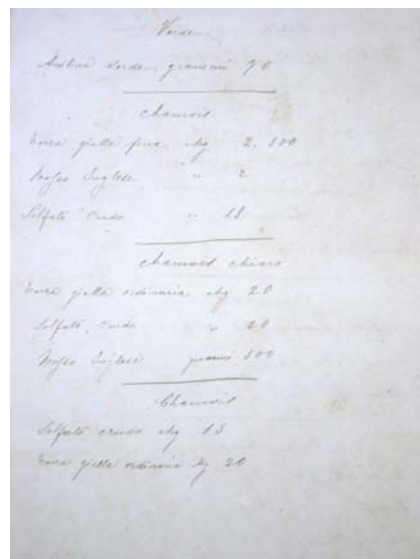 Verde
Anilina verde grammi 70
Chamois
Terra gialla fina chg 2.100
Rosso Inglese " 2
Solfato Crudo " 13
Chamois chiaro
Terra gialla ordinaria chg 20
Solfato Crudo " 20
Rosso Inglese grammi 500
Chamois
Solfato crudo chg 13
Terra gialla ordinaria kg 20